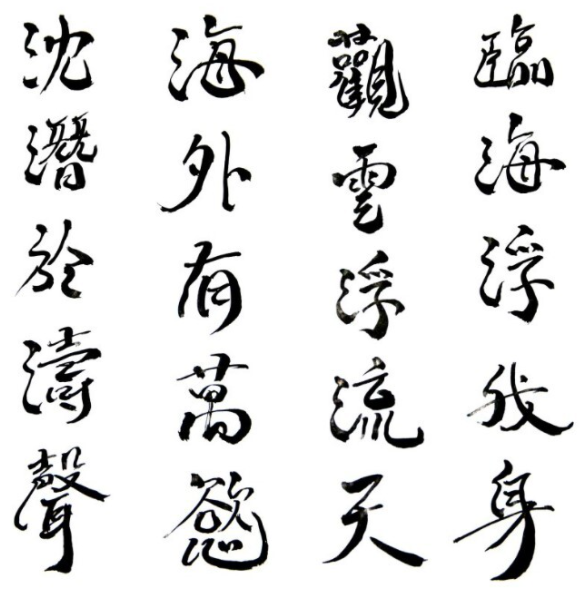 臨海浮我身
觀雲浮流天
海外有萬慾
沈潛於濤聲